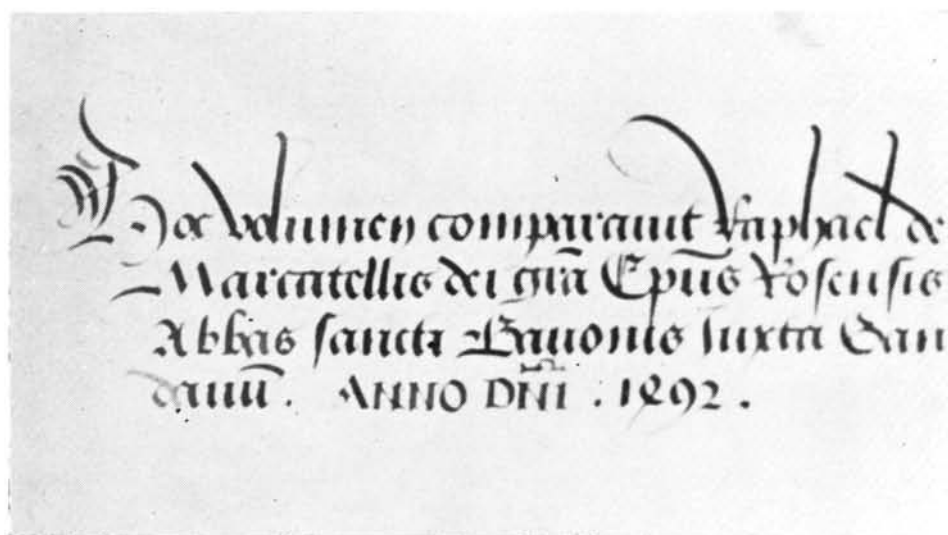 Hoc volumen comparauit Raphael de
Marcatellis dei grā Epūs Rosensis
Abbas sancti Bauonis Iuxta Gan
dauū. ANNO DN̄I . 1492 .